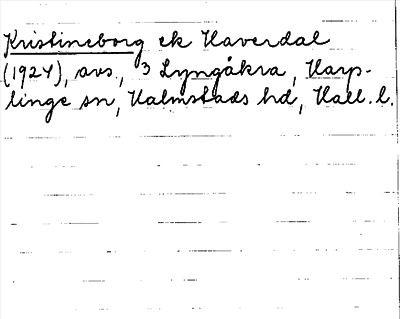 Kristineborg ek Haverdal
(1924), avs., 3 Lyngåkra, Harp-
linge sn, Halmstads hd, Hall. l.